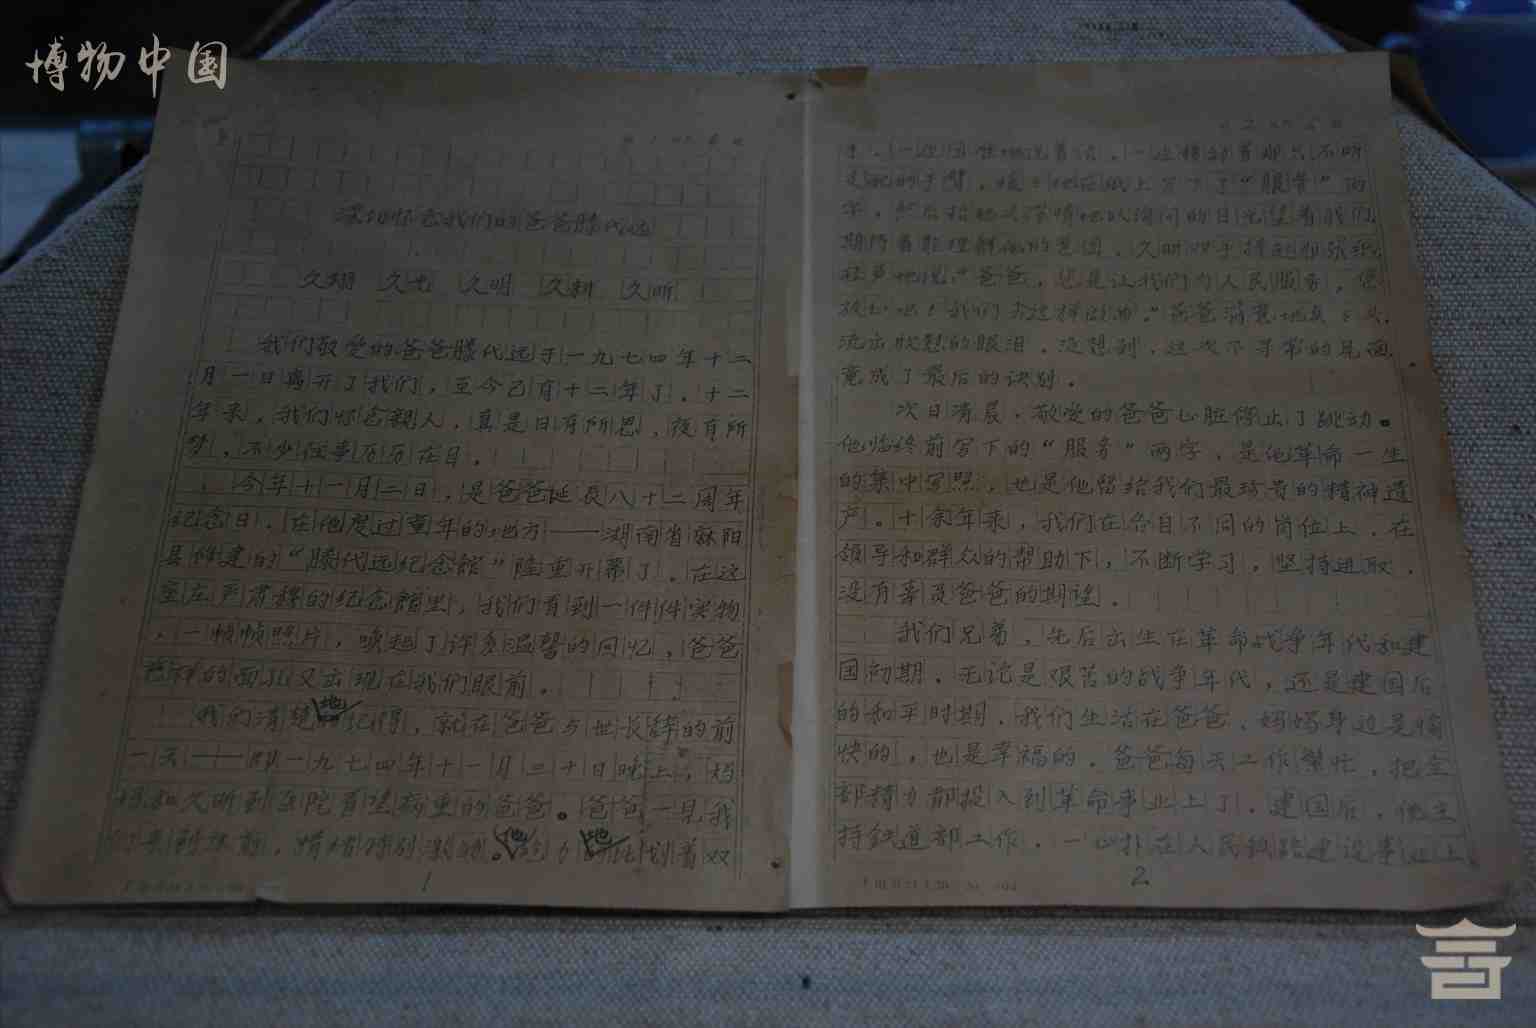 博物中国
深切怀念我们的爸爸滕代远
久翔 久光 久明 久耕 久昕
我们敬爱的爸爸滕代远于一九七四年十二
月一日离开了我们，至今已有十二年了。十二
年来，我们怀念亲人，真是日有所思，夜有所
梦，不少往事历历在目。
今年十一月二日，是爸爸诞辰八十二周年
纪念日，在他度过童年的地方——湖南省麻阳
县修建的“滕代远纪念馆”隆重开幕了。在这
座庄严肃穆的纪念馆里，我们看到一件件实物
，一帧帧照片，唤起了许多温馨的回忆，爸爸
慈祥的面孔又出现在我们眼前。
我们清楚地记得，就在爸爸与世长辞的前
一天——即一九七四年十一月三十日晚上，妈
妈和久昕到医院看望病重的爸爸。爸爸一见我
们来到床前，情绪特别激动。他吃力地比划着双
1
手，一边困难地说着话，一边移动着那只不听
支配的手臂，
在纸上写下了“服务”两
字，然后
的目光望着我们，
期待着能理解他的意图。久明双手捧起那张纸，
轻声地说：“爸爸，您是让我们为人民服务，您
放心吧！我们会这样做的。”爸爸满意地点点头，
流出欣慰的眼泪。没想到，这次不寻常的见面
竟成了最后的诀别。
次日清晨，敬爱的爸爸心脏停止了跳动。
他临终前写下的“服务”两字，是他革命一生
的集中写照，也是他留给我们最珍贵的精神遗
产。十余年来，我们在各自不同的岗位上，在
领导和群众的帮助下，不断学习，坚持进取，
没有辜负爸爸的期望。
我们兄弟，先后出生在革命战争年代和建
国初期。无论是艰苦的战争年代，还是建国后
的和平时期，我们生活在爸爸、妈妈身边是愉
快的，也是幸福的。爸爸每天工作繁忙，把全
部精力都投入到革命事业上了。建国后，他主
持铁道部工作，一心扑在人民铁路建设事业上
2